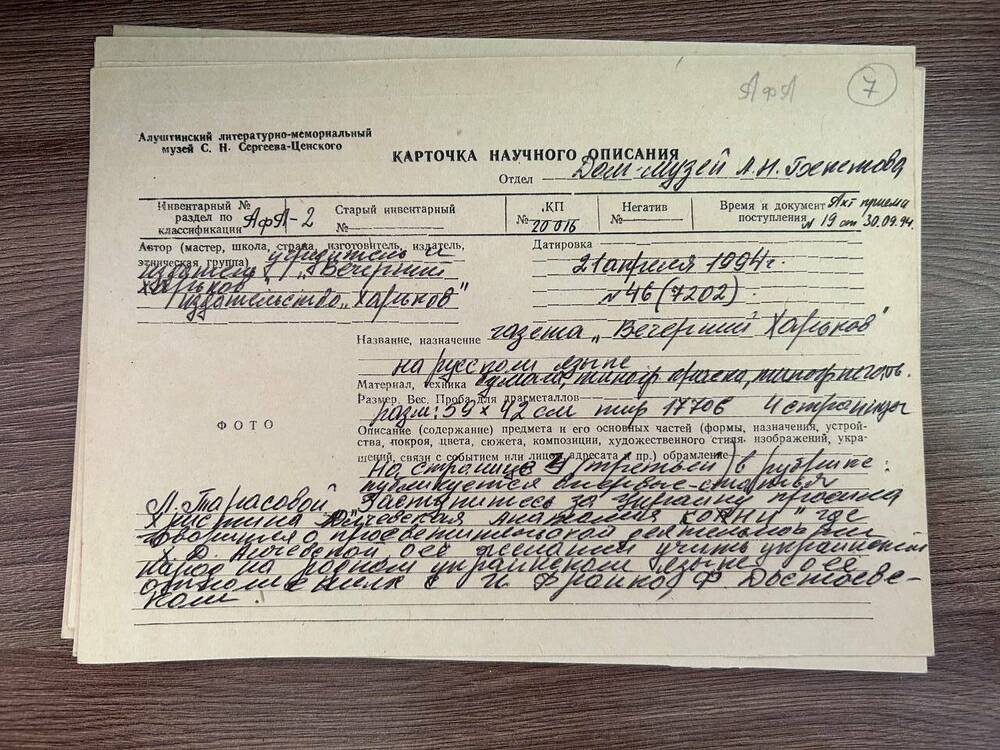 АфА 7
Алуштинский литературно-мемориальный
музей С. Н. Сергеева-Ценского
КАРТОЧКА НАУЧНОГО ОПИСАНИЯ
Отдел Дом-музей А.Н. Бекетова
Инвентарный №
раздел по
классификации АфА-2
Старый инвентарный
№
КП
№ 20016
Негатив
№
Время и документ Акт приема
поступления № 19 от 30.09.94.
Автор (мастер, школа, страна, изготовитель, издатель,
этническая группа) учредитель и
издатель "Вечерний
Харьков"
Издательство „Харьков"
Датировка
21 апреля 1994 г.
№ 46 (7202)
Название, назначение газета „Вечерний Харьков"
на русском языке
Материал, техника бумага, типогр. краска, типогр. печать.
Размер. Вес. Проба для драгметаллов
разм: 59 х 42 см тир 17706 4 страницы
ФОТО
Описание (содержание) предмета и его основных частей (формы, назначения, устрой-
ства, покроя, цвета, сюжета, композиции, художественного стиля, изображений, укра-
шений, связи с событием или лицом, адресата и пр.) обрамление
На странице 3 (третьей) в рубрике:
публикуется впервые - статья
Л. Тарасовой „Заступитесь за Украину просила
Христина Алчевская
где
говорится о просветительской деятельности
Х. Д. Алчевской, о её желании учить украинский
народ на родном украинском языке, о её
с И Франко, Ф. Достоевс-
ким.